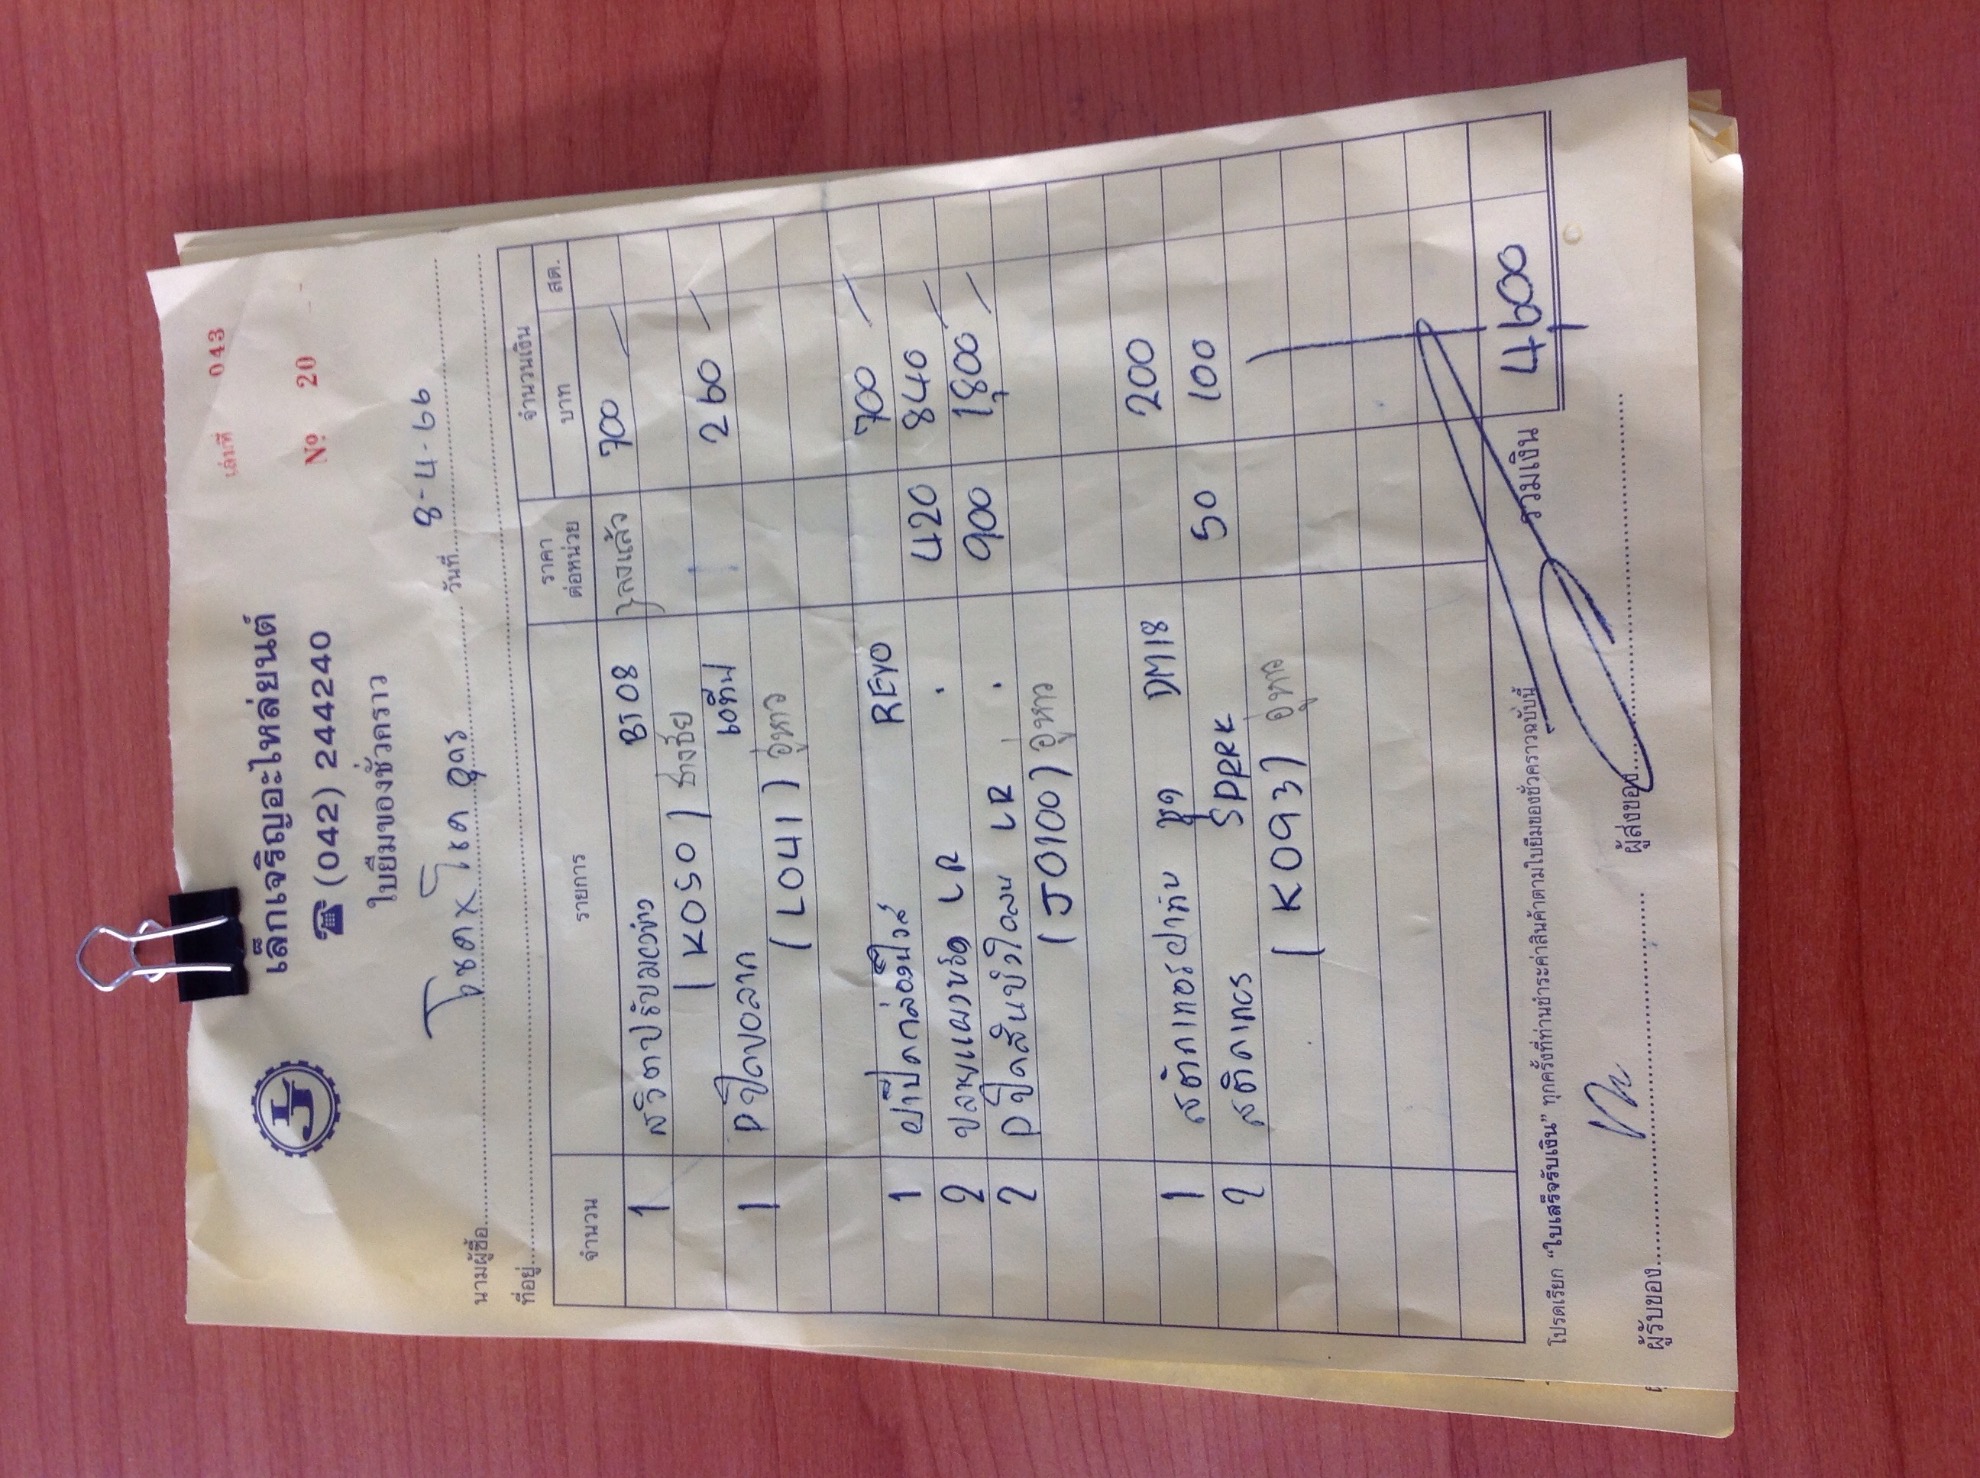 เล่มที่ 043
№ 20
เล็กเจริญอะไหล่ยนต์
☎ (042) 244240
ใบยืมของชั่วคราว
นามผู้ซื้อ โชค X โชค อุดร วันที่ 8-4-66
ที่อยู่
จำนวน รายการ ราคาต่อหน่วย จำนวนเงิน
บาท สต.
1 สวิตปรับมองข้าง BT08 ลงแล้ว 700
(K050) ช่างชัย
1 ปิดขอลาก 260
(L041) อู่หาว
1 ฝาปิดกล่องฟิวส์ REVO 700
2 ปลายแผงหน้า LR 420 840
2 LR 900 1,800
(J0100) อู่หาว
1 สติกเกอร์ฝาท้าย ชุด DM18 200
2 สติกเกอร์ SPARK 50 100
(K093) อู่หาว
รวมเงิน 4600
โปรดเรียก "ใบเสร็จรับเงิน" ทุกครั้งที่ท่านชำระค่าสินค้าตามใบยืมของชั่วคราวฉบับนี้
ผู้รับของ ผู้ส่งของ